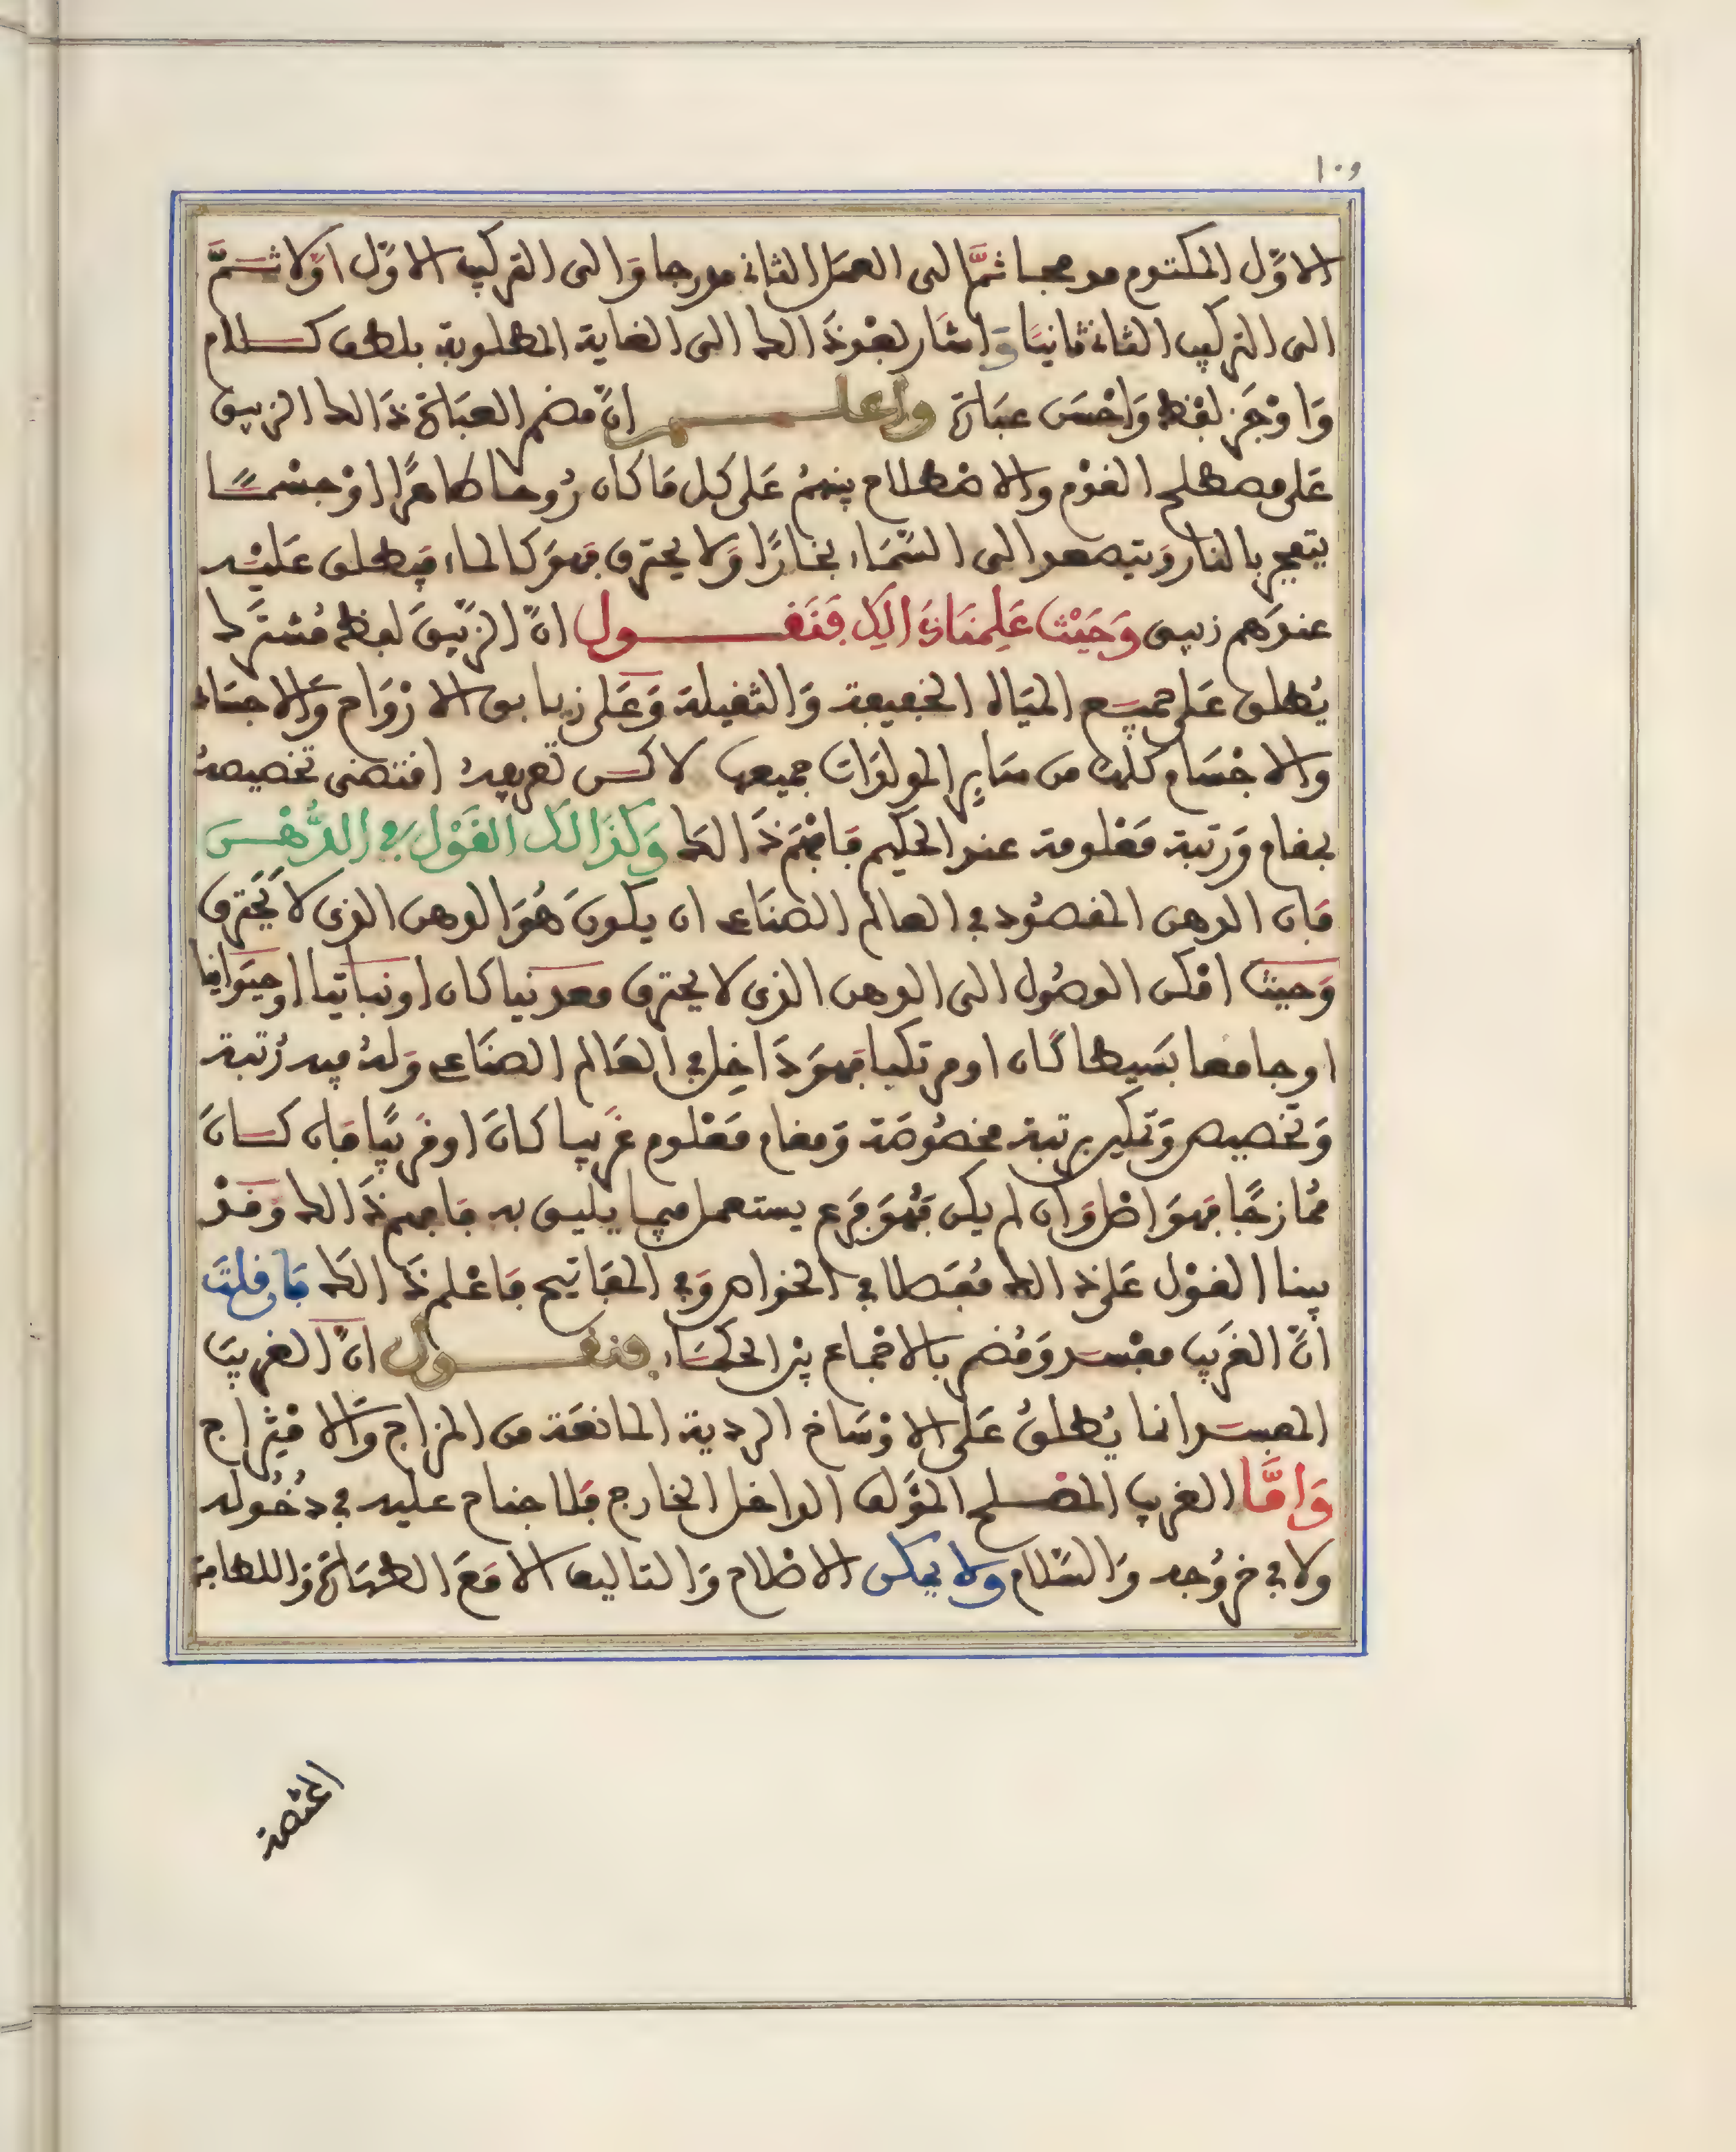 ١٠٩
الاول المكتوم مدمجا ثمّ الى العمل الثاني مدرجا وَالى التركيب الاوّل اوّلا ثـــمّ
الى التركيب الثاني ثانيًا وَاشار لغوذَالك الى الغاية المطلوبة بلطف كـــلام
وَاوْجَز لفظ وَاحْسَن عبَارة واعلـــــم انّ مضمر العبَارة ذَالك الزيبق
عَلى مصطلح الغوْم والاصْطلاح ينهمُ عَلى كل مَا كان رُوحا طاهرًا اوْ جسْمـــًا
يتعجر بالنار وَيتصعد الى السّمَاء بخارًا وَلا يحترق فهوَ كالماء فيطلق عَليْـه
عندَهم زيبق وَحَيْث عَلِمنَا ذَالِك فَنَقـــــول انّ الزّيبقَ لفظ مُشترَك
يُطلق عَلى جميـَـع الميَاه الخفيفة وَالثقيلة وَعَلى زيابق الارْوَاح وَالاجسَاد
والاجْسَام كلها من سَايرِ المولدَات جميعها لاكــن تعريفهُ اقتضى تخصيصهُ
بمقام وَرتبة مَعْلومة عند الحكيم فَافْهَم ذَالك وَكذَالك القَوْل في الدُّهْــن
فَان الدهن المقصُود في العالم الصنَاعي ان يكونَ هُوَ الدهن الذى لا يَحترق
وَحيث امْكن الوصُول الى الدهن الذى لا يحترق معدنيا كان او نباتيا او حيَوَانيا
او جامعا بَسيطا كَان او مرتكبا فهوَ دَاخِل في العَالم الصنَاعي وَلهُ فيه رُتبة
وَتخصيص وَتمكين برتبة مخصُوصَة وَمقام مَعْلوم غرَيبا كانَ او قرَيبًا فَان كــانَ
مُمازجًا فهوَ اصْل وَان لم يكن فَهُوَ فَرع يستعمل فيما يليق به فَافهم ذَالك وَقــدْ
بينا القوْل عَلى ذالك مُفصَلا في الخواص وَفي المفاتيح فَاعْلم ذَالك فَان قلتَ
انّ الغَريب مفْسد وَمُضر بالاجْماع من الحكمَاء فنقـــــول انّ الغريبَ
المفسـد انما يُطلقُ عَلى الاوْسَاخ الردية المانعَة من المزاج وَالامْتزاج
وَامَّا الغريب المصْـلح المؤلف الداخل الخارج فَلا جناح عليه في دخُوله
ولا في خرُوجه وَالسّلام ولا يمكن الاصْلاح وَالتاليف الا مَعَ الطهَارة وَاللطافة